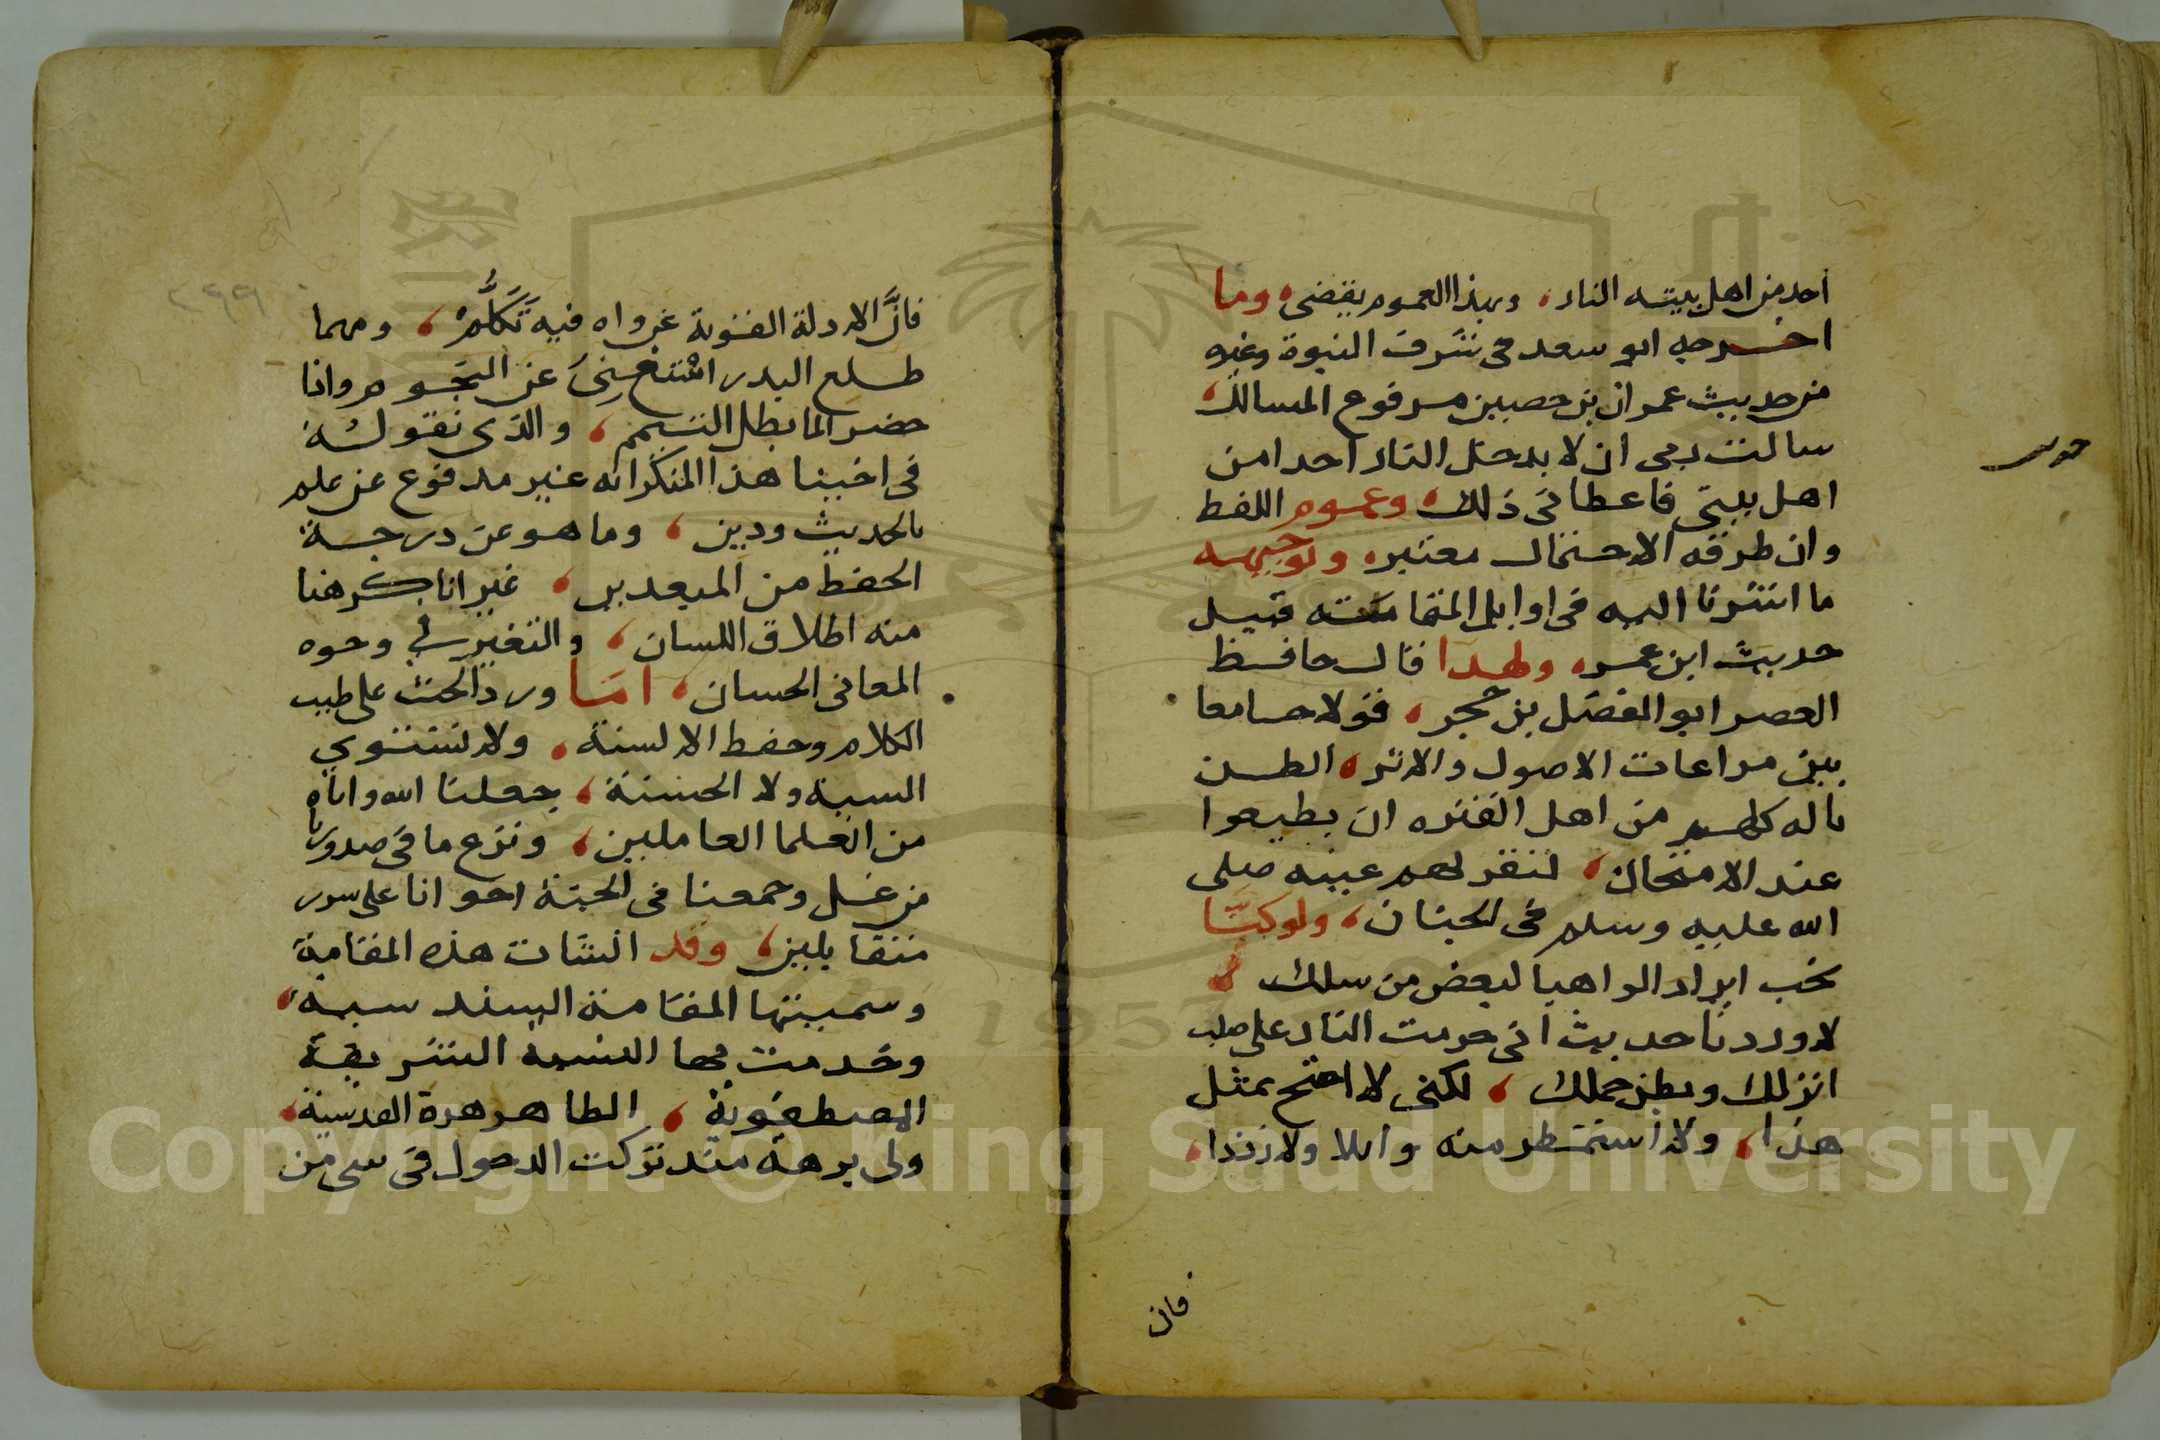 احد من اهل بيته النار، وبهذا العموم يقضى، وما
اخرجه ابو سعد فى شرف النبوة وغيره
من حديث عمران بن حصين مرفوع المسالك،
سالت ربى ان لا يدخل النار احدا من
اهل بيتى فاعطانى ذلك، وعموم اللفظ
وان طرقه الاحتمال معتبر، وتوجيهه
ما اشرنا اليه فى اوايل المقامة قبيل
حديث ابن عمر، ولهذا قال حافظ
العصر ابو الفضل بن حجر، قولا جامعا
بين مراعات الاصول والاثر، الظن
باله كلهم من اهل الفتره ان يطيعوا
عند الامتحان، لتقر لهم عينه صلى
الله عليه وسلم فى الجنان، ولو كنا
نحب ايراد الواهيا لبعض من سلك،
لاوردنا حديث انى حرمت النار على صلب
انزلك وبطن حملك، لكنى لا احتج بمثل
هذا، ولا استمطر منه وابلا ولا رذذا،
فان
فانَّ الادلة القوية عن واه فيه تَكَلُّم، ومهما
طلع البدر استغنى عن النجوم واذا
حضر الما بطل التيمم، والذى نقوله
فى اخينا هذا المنكر انه غير مدفوع عن علم
بالحديث ودين، وما هو عن درجة
الحفظ من المبعدين، غير انا كرهنا
منه اطلاق اللسان، والتغيير فى وجوه
المعانى الحسان، اما ورد الحث على طيب
الكلام وحفظ الالسنة، ولا تستوي
السية ولا الحسنة، جعلنا الله واياه
من العلما العاملين، ونزع ما فى صدورنا
من غل وجمعنا فى الجنة اخوانا على سرر
متقابلين، وقد انشات هذه المقامة
وسميتها المقامة السندسية،
وخدمت بها النسبة الشريفة
المصطفوية، الطاهرة القدسية،
ولى برهة مند تركت الدخول فى سى من
1957
Copyright © King Saud University